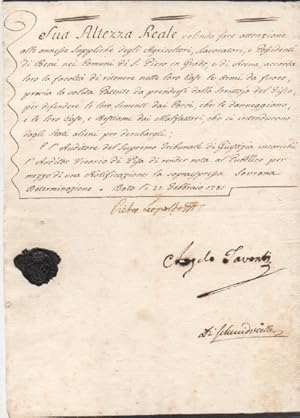 Sua Altezza Reale volendo fare attenzione
alle annesse Suppliche degli Agricoltori, Lavoratori, e Possidenti
di Beni nei Comuni di S. Piero in Grado, e di Arena, accorda
loro la facoltà di ritenere nelle loro Case le Armi da fuoco,
previa la solita Patente da prendersi dallo Scrittojo del Fisco,
per difendere le loro Semente dai Porci, che le danneggiano,
e le loro Case, e Bestiami dai Malfattori, che si introducono
dagli Stati alieni per derubarli;
E l'Auditore del Supremo Tribunale di Giustizia incarichi
l'Auditor Vicario di Pisa di render nota al Pubblico per
mezzo di una Notificazione la soprascritta Sovrana
Determinazione. Dato li 21 Febbraio 1781
Pietro Leopoldo
Angelo Tavanti